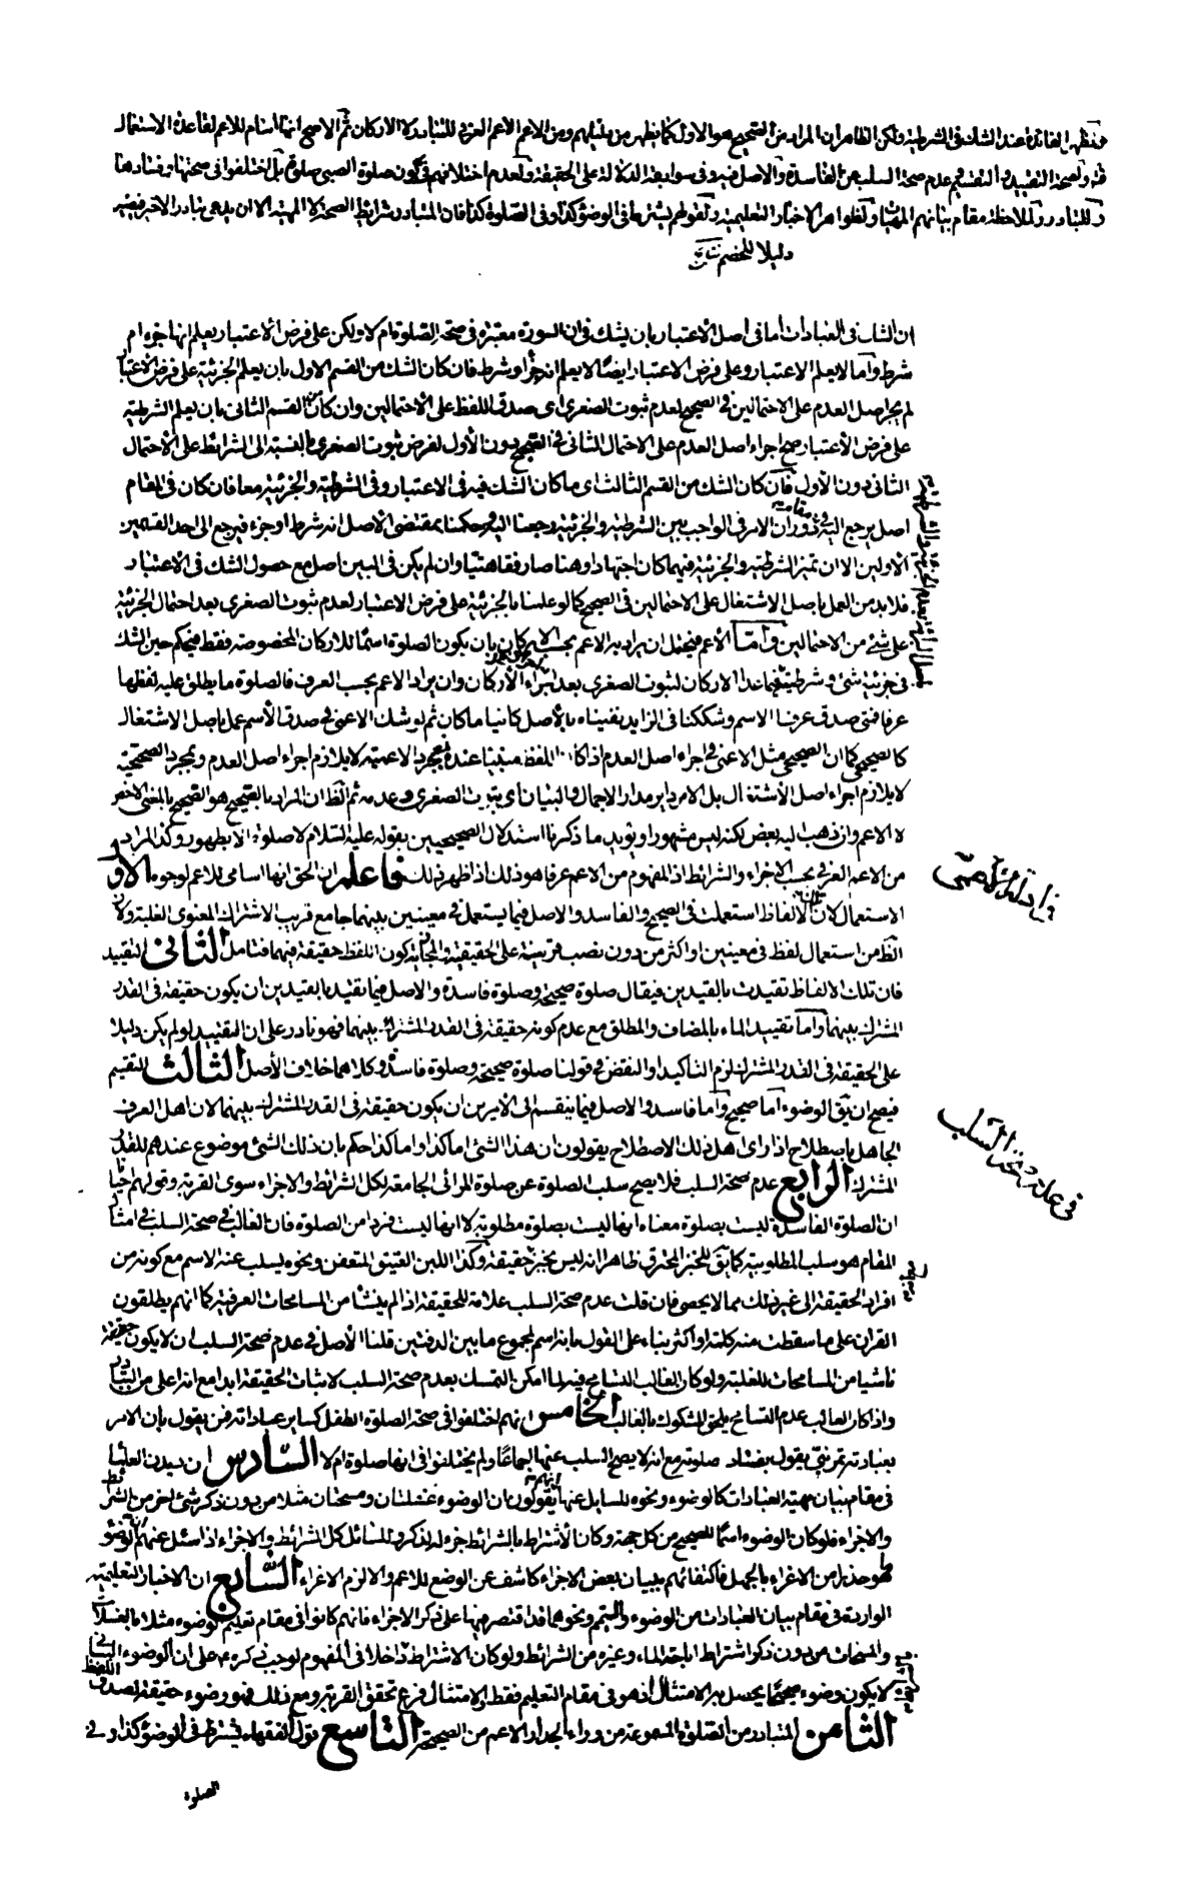 فتظهر الفائدة عند الشك فى الشرطية ولكن الظاهر ان المراد من الصحيح هو الاول كما يظهر من دليلهم ومن الاعم الاعم العرفى للتبادر لا الاركان ثم الاصح انها اسام للاعم لقاعدة الاستعمال
ولصحة التقييد والتقسيم عدم صحة السلب عن الفاسدة والاصل فيه وفى سوابقه الدلالة على الحقيقة ولعدم اختلافهم فى كون صلوة الصبى صلوة بل اختلفوا فى صحتها وفسادها
وللتبادر ولملاحظة مقام بيانهم المهيات ولظواهر الاخبار التعليمية ولقولهم يشترط فى الوضوء كذا وفى الصلوة كذا فان المتبادر شرائط الصحة لا المهية الا ان يدعى تبادر الاخير فيصير
دليلا للخصم
ان الشك فى العبادات اما فى اصل الاعتبار بان يشك فى ان السورة معتبرة فى صحة الصلوة ام لا ولكن على فرض الاعتبار يعلم انها جزء ام
شرط واما لا يعلم الاعتبار وعلى فرض الاعتبار ايضا لا يعلم انه جزء او شرط فان كان الشك من القسم الاول بان يعلم الجزئية على فرض الاعتبار
لم يجر اصل العدم على الاحتمالين فى الصحيح لعدم ثبوت الصغرى اى صدق اللفظ على الاحتمالين وان كان من القسم الثانى بان يعلم الشرطية
على فرض الاعتبار صح اجراء اصل العدم على الاحتمال الثانى فى الصحيح دون الاول لفرض ثبوت الصغرى بالنسبة الى الشرائط على الاحتمال
الثانى دون الاول فان كان الشك من القسم الثالث اى ما كان الشك فيه فى الاعتبار وفى الشرطية والجزئية معا فان كان فى المقام
اصل يرجع اليه فى دوران الامر فى الواجب بين الشرطية والجزئية رجعنا اليه وحكمنا بمقتضى الاصل انه شرط او جزء فيرجع الى احد القسمين
الاولين الا ان تميز الشرطية والجزئية فيهما كان اجتهادا وهنا صار فقاهتيا وان لم يكن فى البين اصل مع حصول الشك فى الاعتبار
فلا بد من العمل باصل الاشتغال على الاحتمالين فى الصحيح كما لو علمنا بالجزئية على فرض الاعتبار لعدم ثبوت الصغرى بعد احتمال الجزئية
على شئ من الاحتمالين واما الاعم فيحتمل ان يراد به الاعم بحسب الاركان بان يكون الصلوة اسما للاركان المخصوصة فقط فيحكم حين الشك
فى جزئية شئ وشرطيته فيما عدا الاركان لثبوت الصغرى بعد اجراء الاركان وان يراد الاعم بحسب العرف فالصلوة ما يطلق عليه لفظها
عرفا فمتى صدق عرفا الاسم وشككنا فى الزايد نفيناه بالاصل كائنا ما كان ثم لو شك الاعمى فى صدق الاسم عمل باصل الاشتغال
كالصحيحى كما ان الصحيحى مثل الاعمى فى اجراء اصل العدم اذا كان اللفظ مبينا عنده فمجرد الاعمية لا يلازم اجراء اصل العدم ومجرد الصحيحية
لا يلازم اجراء اصل الاشتغال بل الامر داير مدار الاجمال والبيان اى ثبوت الصغرى وعدمه ثم الظ ان المراد بالصحيح هو الصحيح بالمعنى الاخص
لا الاعم وان ذهب اليه بعض لكنه ليس مشهورا ويؤيد ما ذكرنا استدلال الصحيحيين بقوله عليه السلام لا صلوة الا بطهور وكذا المراد
من الاعم العرفى بحسب الاجزاء والشرائط اذ المفهوم من الاعم عرفا هو ذلك اذا ظهر ذلك فاعلم ان الحق انها اسامى للاعم لوجوه الاول
الاستعمال لان الالفاظ استعملت فى الصحيح والفاسد والاصل فيما يستعمل فى معينين بينهما جامع قريب الاشتراك المعنوى للغلبة ولان
الظ من استعمال لفظ فى معينين او اكثر من دون نصب قرينة على الحقيقية والمجازية كون اللفظ حقيقة فيهما فتامل الثانى التقييد
فان تلك الالفاظ تقيدت بالقيدين فيقال صلوة صحيحة وصلوة فاسدة والاصل فيما تقيد بالقيدين ان يكون حقيقة فى القدر
المشترك بينهما واما تقييد الماء بالمضاف والمطلق مع عدم كونه حقيقة فى القدر المشترك بينهما فهو نادر على ان التقييد لو لم يكن دليلا
على الحقيقة فى القدر المشترك لزم التاكيد او النقض فى قولنا صلوة صحيحة وصلوة فاسدة وكلاهما خلاف الاصل الثالث التقسيم
فيصح ان يق الوضوء اما صحيح واما فاسد والاصل فيما ينقسم الى الامرين ان يكون حقيقة فى القدر المشترك بينهما لان اهل العرف
الجاهل باصطلاح اذا راى اهل ذلك الاصطلاح يقولون ان هذا الشئ اما كذا واما كذا حكم بان ذلك الشئ موضوع عندهم للقدر
المشترك الرابع عدم صحة السلب فلا يصح سلب الصلوة عن صلوة المرائى الجامعة لكل الشرائط والاجزاء سوى القربة وقولهم احيانا
ان الصلوة الفاسدة ليست بصلوة معناه انها ليست بصلوة مطلوبة لا انها ليست فردا من الصلوة فان الغالب فى صحة السلب فى امثال
المقام هو سلب المطلوبية كما يق للخبز المحترق ظاهرا انه ليس بخبز حقيقة وكذا اللبن العتيق المتعفن ونحوه يسلب عنه الاسم مع كونه من
افراد الحقيقة الى غير ذلك مما لا يحصى فان قلت عدم صحة السلب علامة للحقيقة اذا لم ينشأ من المسامحات العرفية كما انهم يطلقون
القران على ما سقطت منه كلمة او اكثر بناء على القول بانه اسم لمجموع ما بين الدفتين قلنا الاصل فى عدم صحة السلب ان لا يكون حقيقة
ناشيا من المسامحات للغلبة ولو كان الغالب التسامح فيه لما امكن التمسك بعدم صحة السلب لاثبات الحقيقة ابدا مع انه اعلى من التبادر
واذا كان الغالب عدم التسامح يلحق المشكوك بالغالب الخامس انهم اختلفوا فى صحة الصلوة الطفل كساير عباداته فمن يقول بان الامر
بعبادته تمرينى يقول بفساد صلوته مع انه لا يصح السلب عنها اجماعا ولم يختلفوا فى انها صلوة ام لا السادس ان ديدن العلماء
فى مقام بيان مهية العبادات كالوضوء ونحوه للسايل عنها انهم يقولون ان الوضوء غسلتان ومسحتان مثلا من دون ذكر شئ اخر من الشرائط
والاجزاء فلو كان الوضوء اسما للصحيح من كل جهة وكان الاشتراط بالشرائط جزء له لذكروا للسائل كل الشرائط والاجزاء اذا سئل عنهم الوضوء
ما هو حذرا من الاغراء بالجهل فاكتفائهم ببيان بعض الاجزاء كاشف عن الوضع للاعم والا لزم الاغراء السابع ان الاخبار التعليمية
الواردة فى مقام بيان العبادات من الوضوء والتيمم ونحوهما قد اقتصر منها على ذكر الاجزاء فانهم كانوا فى مقام تعليم الوضوء مثلا بالغسلات
والمسحات من دون ذكر اشتراط اباحة الماء وغيره من الشرائط ولو كان الاشتراط داخلا فى المفهوم لوجب ذكره على ان الوضوء البيانى
لا يكون وضوء صحيحا يحصل به الامتثال اذ هو فى مقام التعليم فقط والامتثال فرع تحقق القربة ومع ذلك فهو وضوء حقيقة لصدق اللفظ
الثامن المتبادر من الصلوة المسموعة من وراء الجدار الاعم من الصحيحة التاسع قول الفقهاء يشترط فى الوضوء كذا وفى
الصلوة
فى ادلة الاعمى
فى علامة صحة السلب